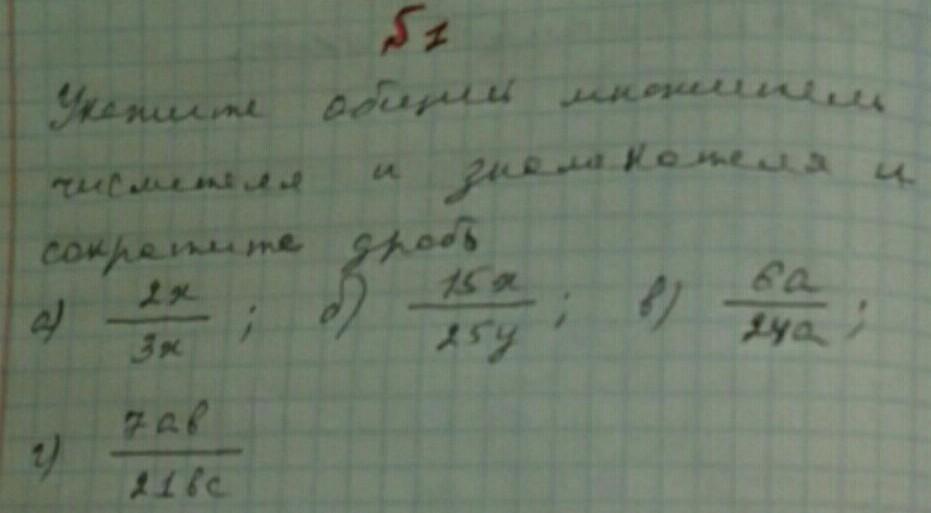 №1
Укажите общий множитель
числителя и знаменателя и
сократите дробь
а) 2x/3x ; б) 15x/25y ; в) 6a/24a ;
г) 7ab/21bc